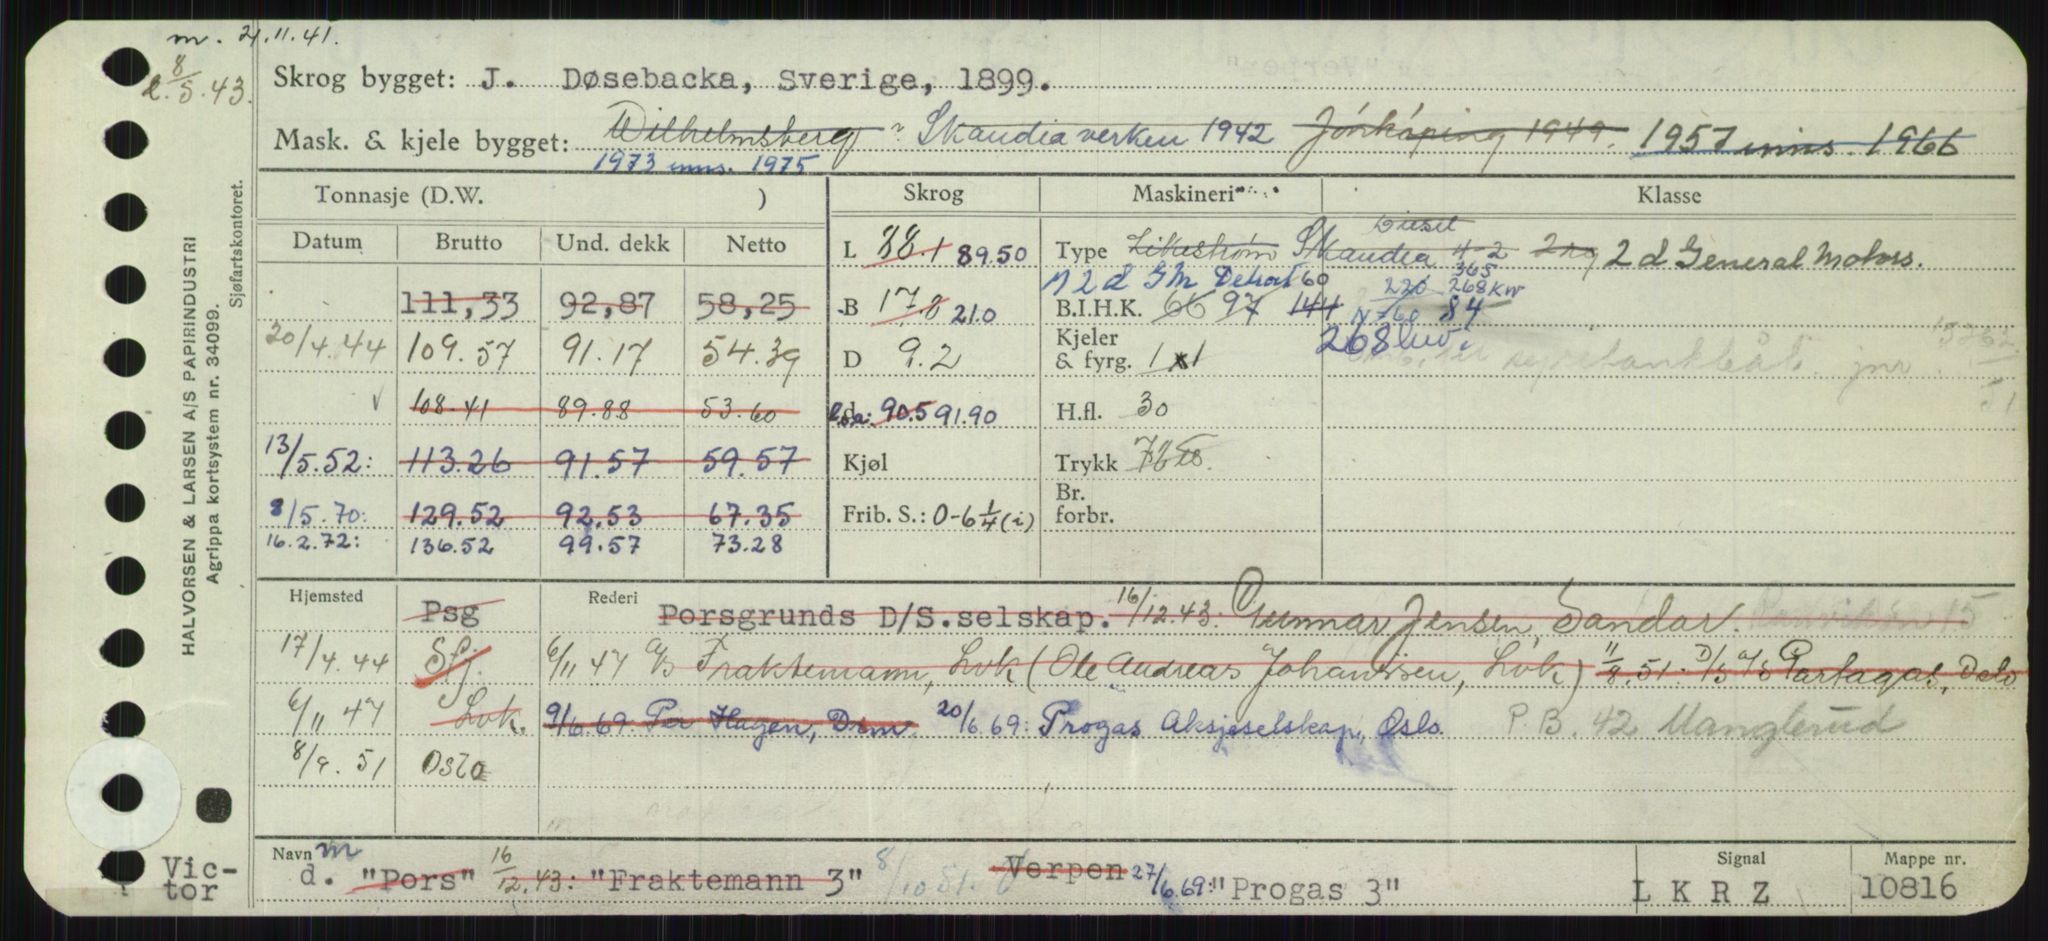 m. 21.11.41.
8/5.43.
Skrog bygget: J. Døsebacka, Sverige, 1899.
Mask. & kjele bygget: Wilhelmsberg ? Skandiaverken 1942 Jönköping 1949. 1957 inns. 1966
1973 inns. 1975
Tonnasje (D.W. )
Skrog
Maskineri
Klasse
Datum Brutto Und. dekk Netto
111,33 92,87 58,25
20/4.44 109.57 91.17 54.39
√ 108.41 89.88 53.60
13/5.52: 113.26 91.57 59.57
8/5.70: 129.52 92.53 67.35
16.2.72: 136.52 99.57 73.28
L 88.1 89.50
B 17.8 21.0
D 9.2
d 90.5 91.90
Kjøl
Frib. S.: 0-6 1/4 (i)
Diesel
Type Skandia 2 d General Motors.
N 2 d GM Detroit 60 365
220 268 KW
B.I.H.K. 66 97 144 N 760 84
268 kw.
Kjeler
& fyrg. 1x1
H.fl. 30
Trykk
Br.
forbr.
Hjemsted Psg
17/4.44 Sfj.
6/11 47 Lvk.
8/9. 51 Oslo
Rederi Porsgrunds D/S.selskap. 16/12.43: Gunnar Jensen, Sandar.
6/11 47 A/S Fraktemann, Lvk (Ole Andreas Johannsen, Lvk) 11/8.51. D/S A/S Partagas, Oslo
9/6.69. Per Hagen, Drm. 20/6.69: Progas Aksjeselskap, Oslo. P.B. 42 Manglerud
Navn m
d. "Pors" 16/12.43: "Fraktemann 3" 8/10 51. Verpen 27/6.69: "Progas 3"
Signal
L K R Z
Mappe nr.
10816
Vic-
tor
HALVORSEN & LARSEN A/S PAPIRINDUSTRI
Agrippa kortsystem nr. 34099.
Sjøfartskontoret.